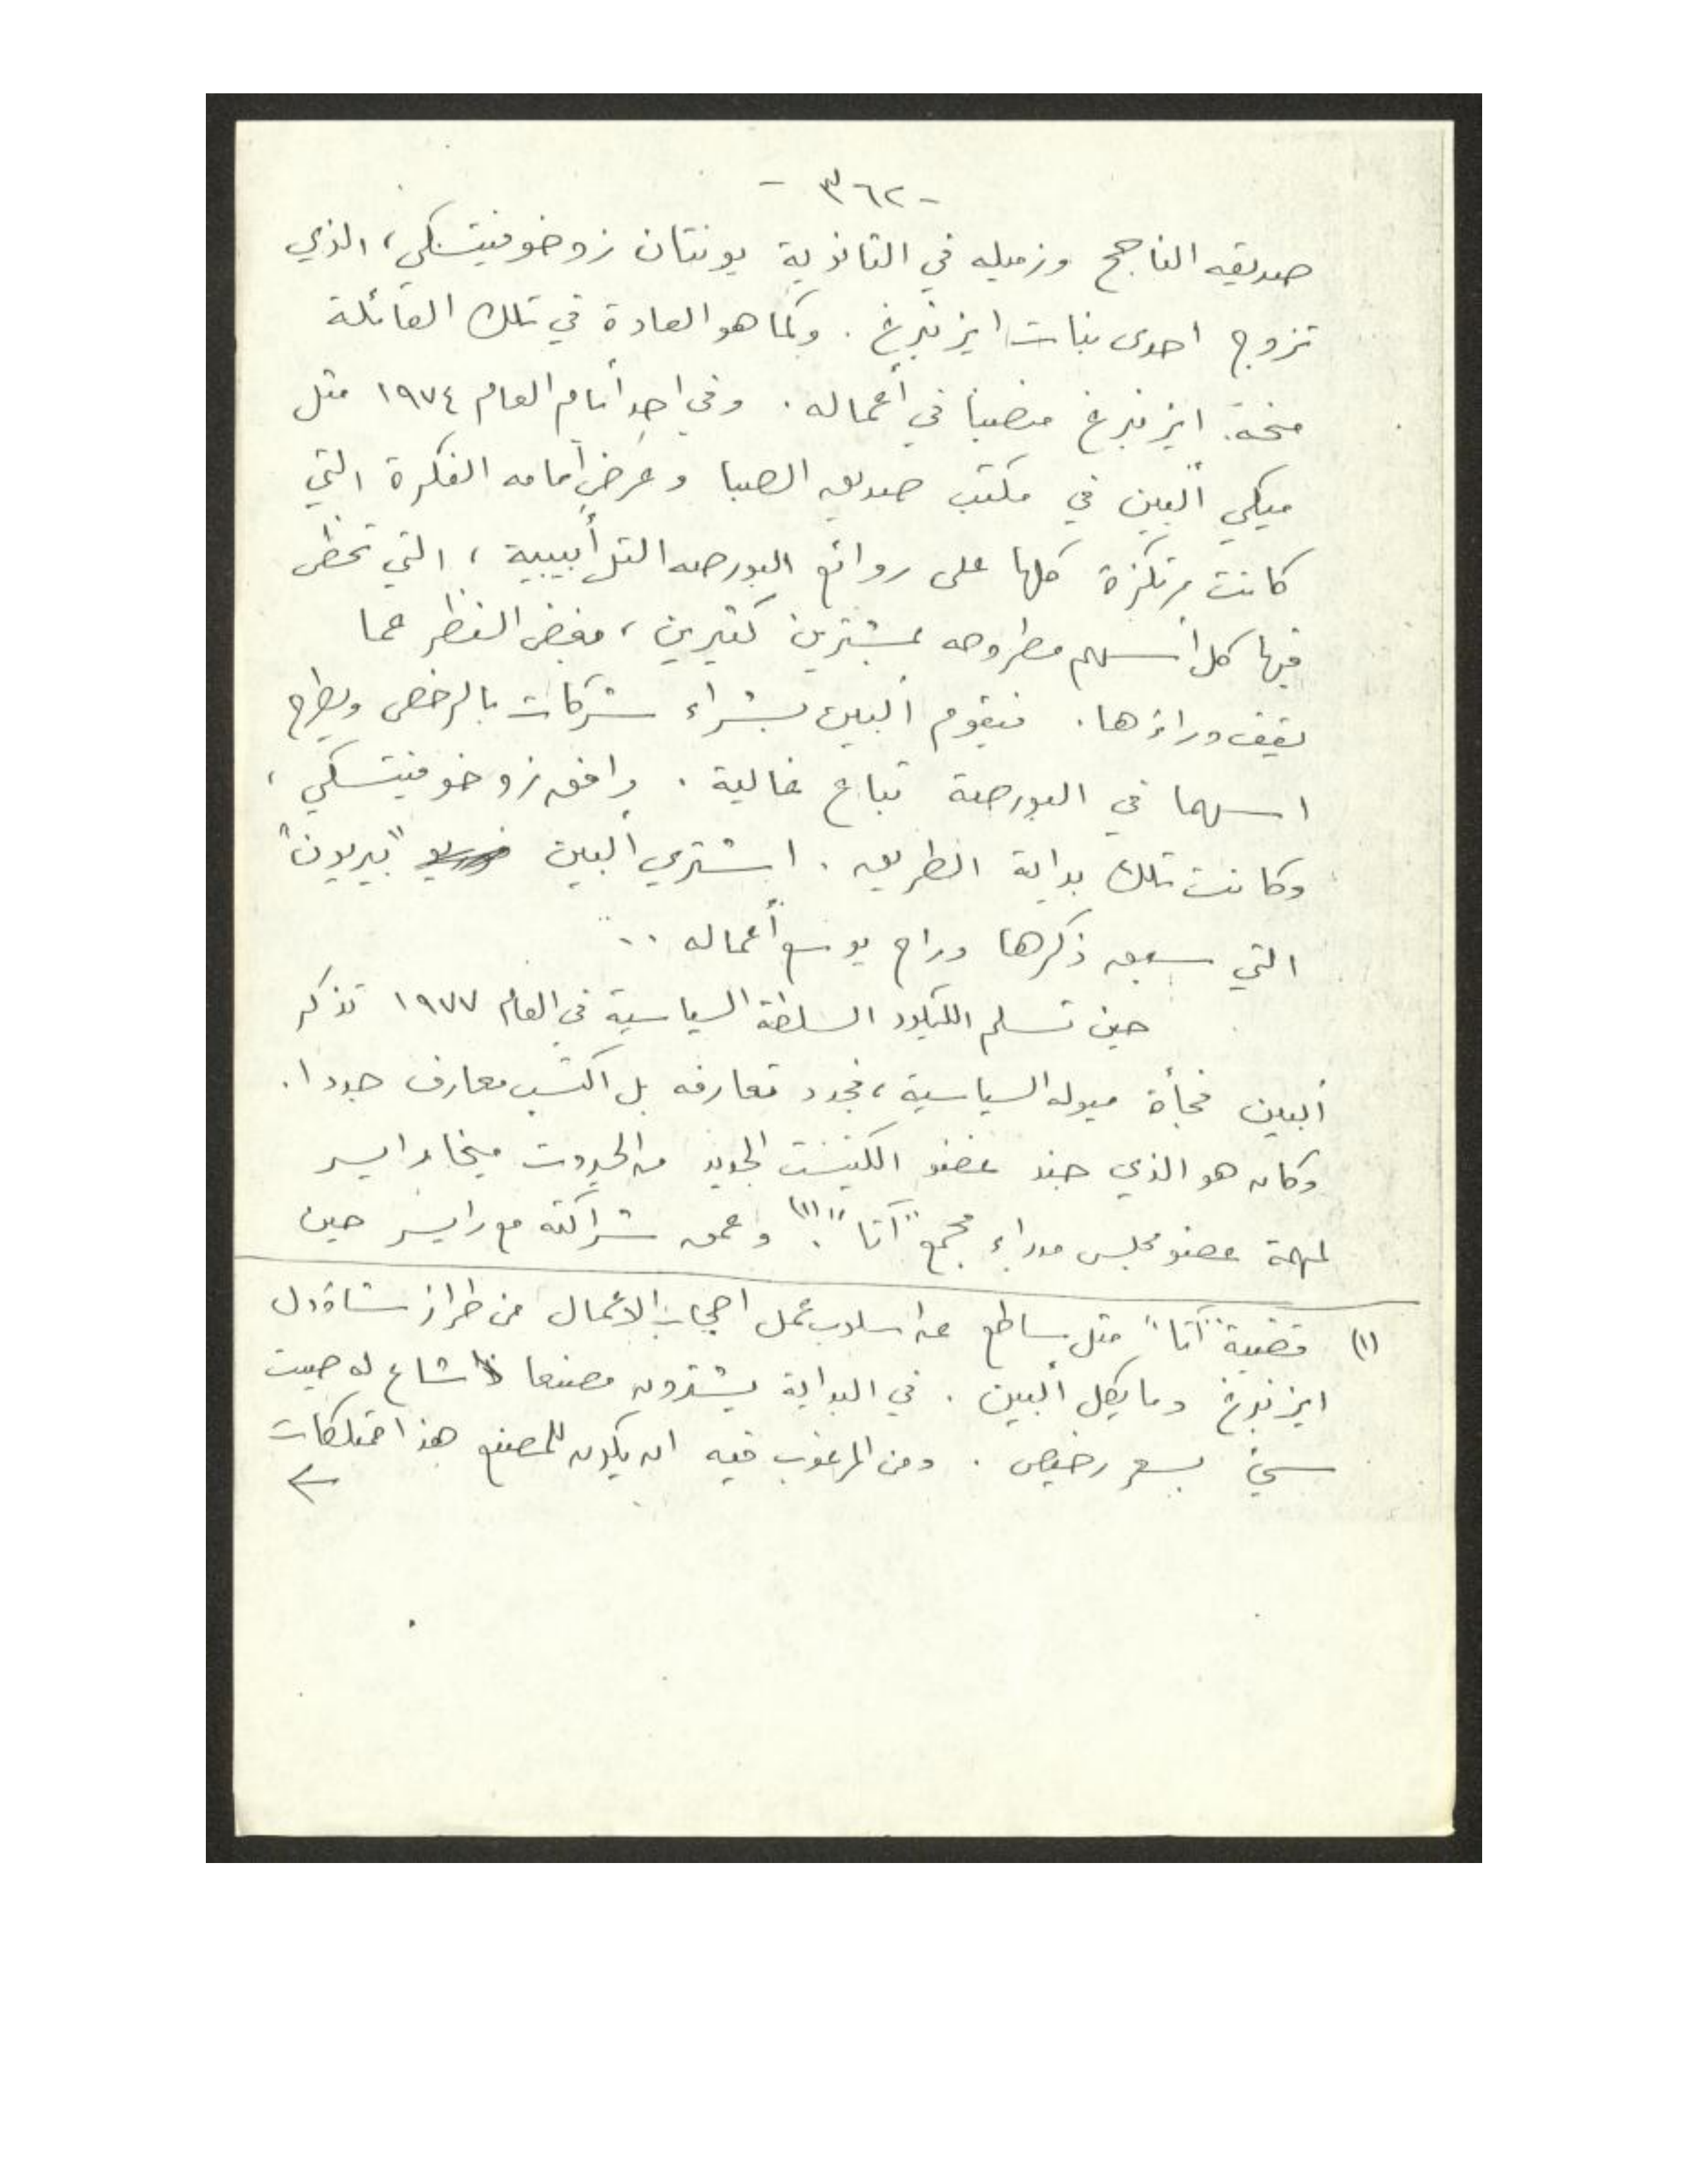 - ٣٦٢ -
صديقه الناجح وزميله في الثانوية يونتان زوخوفيتسكي، الذي
تزوج احدى بنات ايزنبرغ . وكما هو العادة في تلك العائلة
منحه ايزنبرغ منصبا في أعماله . وفي احد أيام العام ١٩٧٤ مثل
ميكي ألبين في مكتب صديق الصبا وعرض أمامه الفكرة التي
كانت مرتكزة كلها على روائع البورصه التل أبيبية ، التي تحظى
فيها كل أسهم مطروحه بمشترين كثيرين ، بغض النظر عما
يقف وراءها . فيقوم ألبين بشراء شركات بالرخص ويطرح
اسهما في البورصة تباع غالية . وافق زوخوفيتسكي ،
وكانت تلك بداية الطريق . اشترى ألبين "بيريون"
التي سبق ذكرها وراح يوسع أعماله ...
حين تسلم الليكود السلطة السياسية في العام ١٩٧٧ تذكر
ألبين فجأة ميوله السياسية ، فجدد تعارفه بل اكتسب معارف جددا .
وكان هو الذي جند عضو الكنيست الجديد من الحيروت ميخا رايسر
لمهمة عضو مجلس مدراء مجمع "آتا" (١) . وعمق شراكته مع رايسر حين
(١) قضية "آتا" مثل ساطع عن اسلوب عمل اصحاب الاعمال من طراز شاؤول
ايزنبرغ ومايكل ألبين . في البداية يشترون مصنعا شاع له صيت
سيئ بسعر رخيص . ومن المرغوب فيه ان يكون للمصنع هذا ممتلكات
←